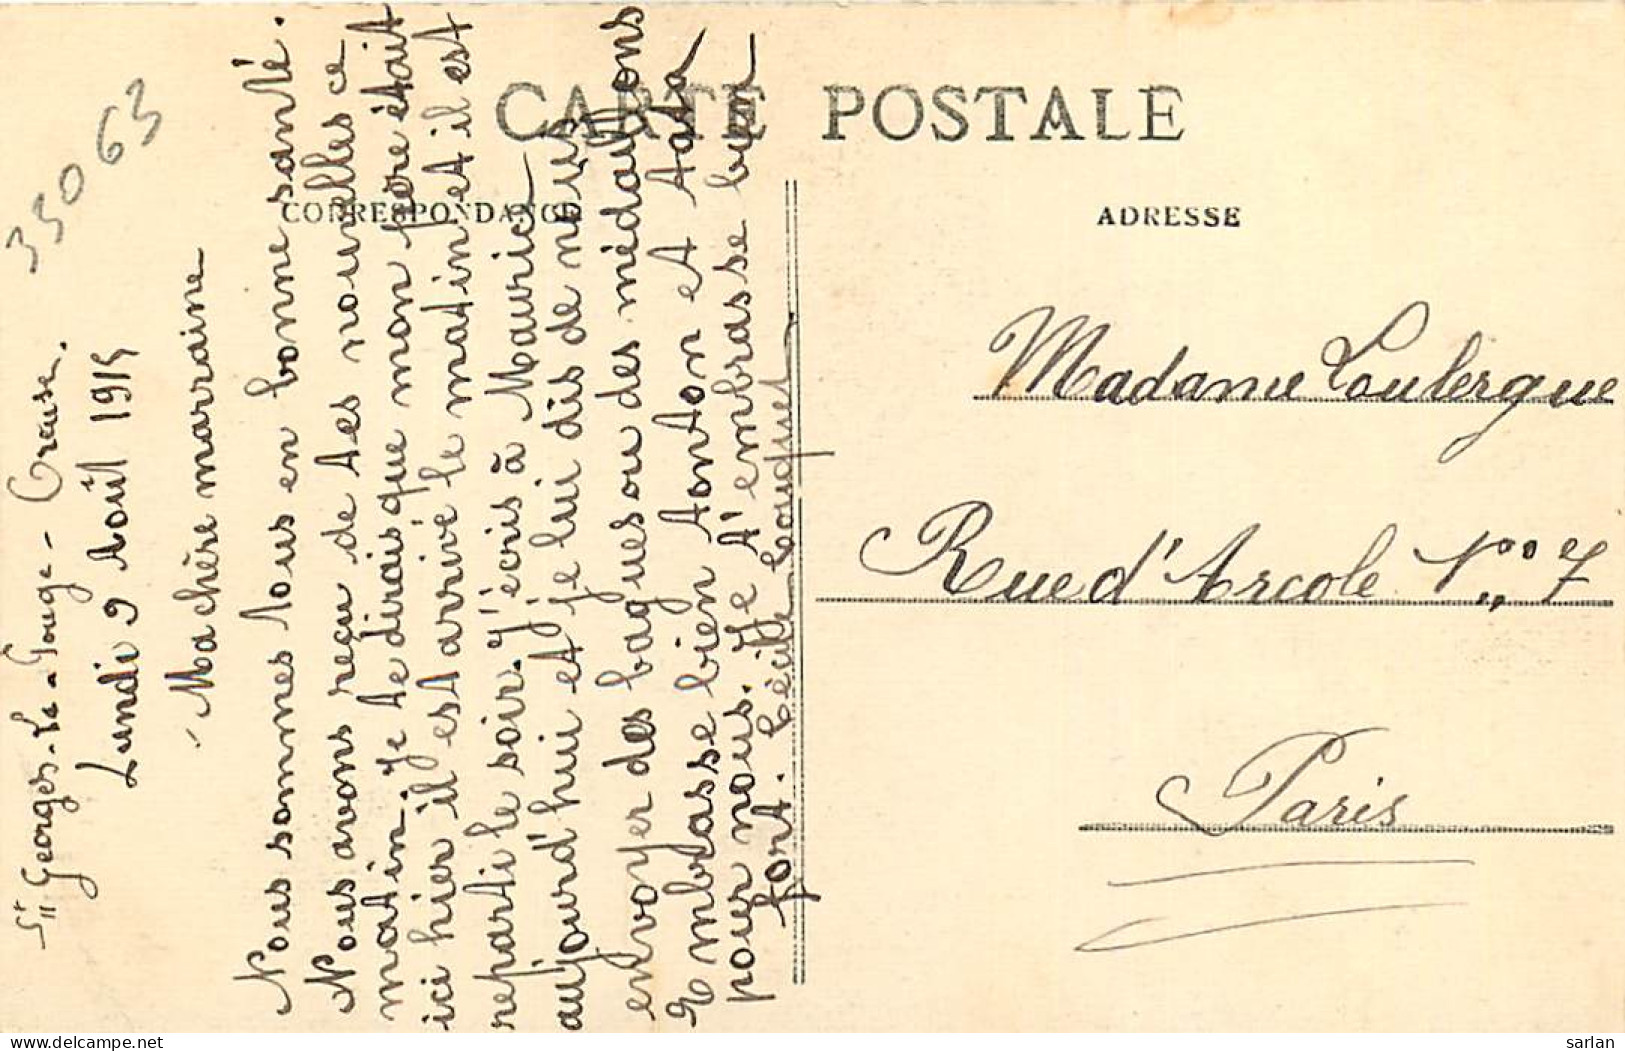 35063
CARTE POSTALE
CORRESPONDANCE
ADRESSE
St Georges-la-Pouge - Creuse.
Lundi 9 Août 1915
Ma chère marraine
Nous sommes tous en bonne santé.
Nous avons reçu de tes nouvelles ce
matin. Je te dirais que mon père était
ici hier il est arrivé le matin et il est
reparti le soir. J'écris à Maurice
aujourd'hui et je lui dis de nous
envoyer des bagues ou des médaillons
Embrasse bien tonton et tata
pour nous. Je t'embrasse bien
fort. Cécile
Madame Loulergue
Rue d'Arcole N° 7
Paris
delcampe.net
sarlan